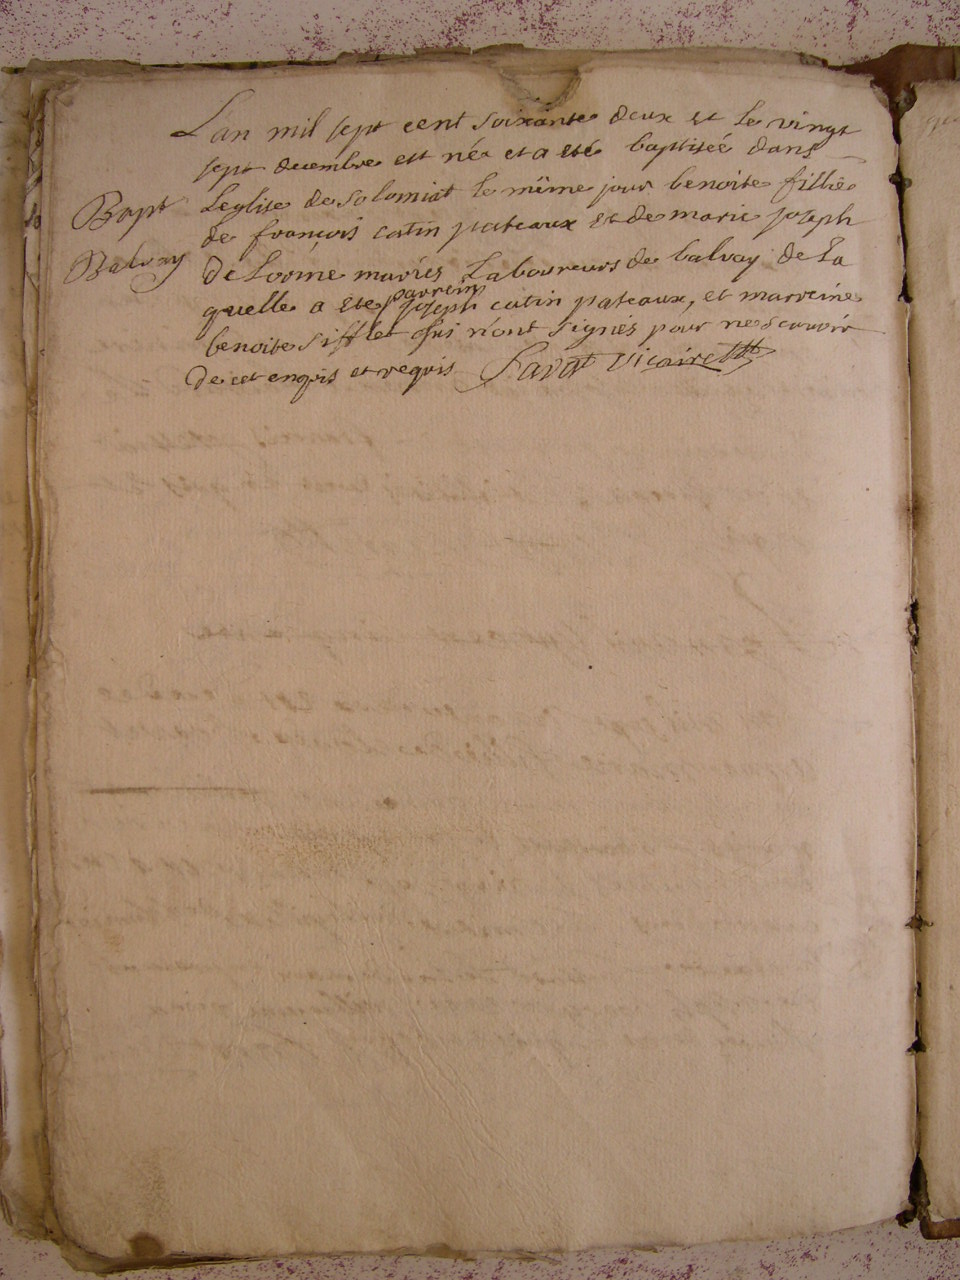 L'an mil sept cent soixante deux et le vingt
sept decembre est née et a eté baptisée dans
Bapt
Leglise de Solomiat le même jour benoite fillie
de françois catin pateaux et de marie joseph
Balvay
De Lorme mariés Laboureurs de balvay de La
quelle a ete parrein joseph catin pateaux, et marreine
benoite sifflet qui n'ont signés pour ne scavoir
De cet enquis et requis Vicaire